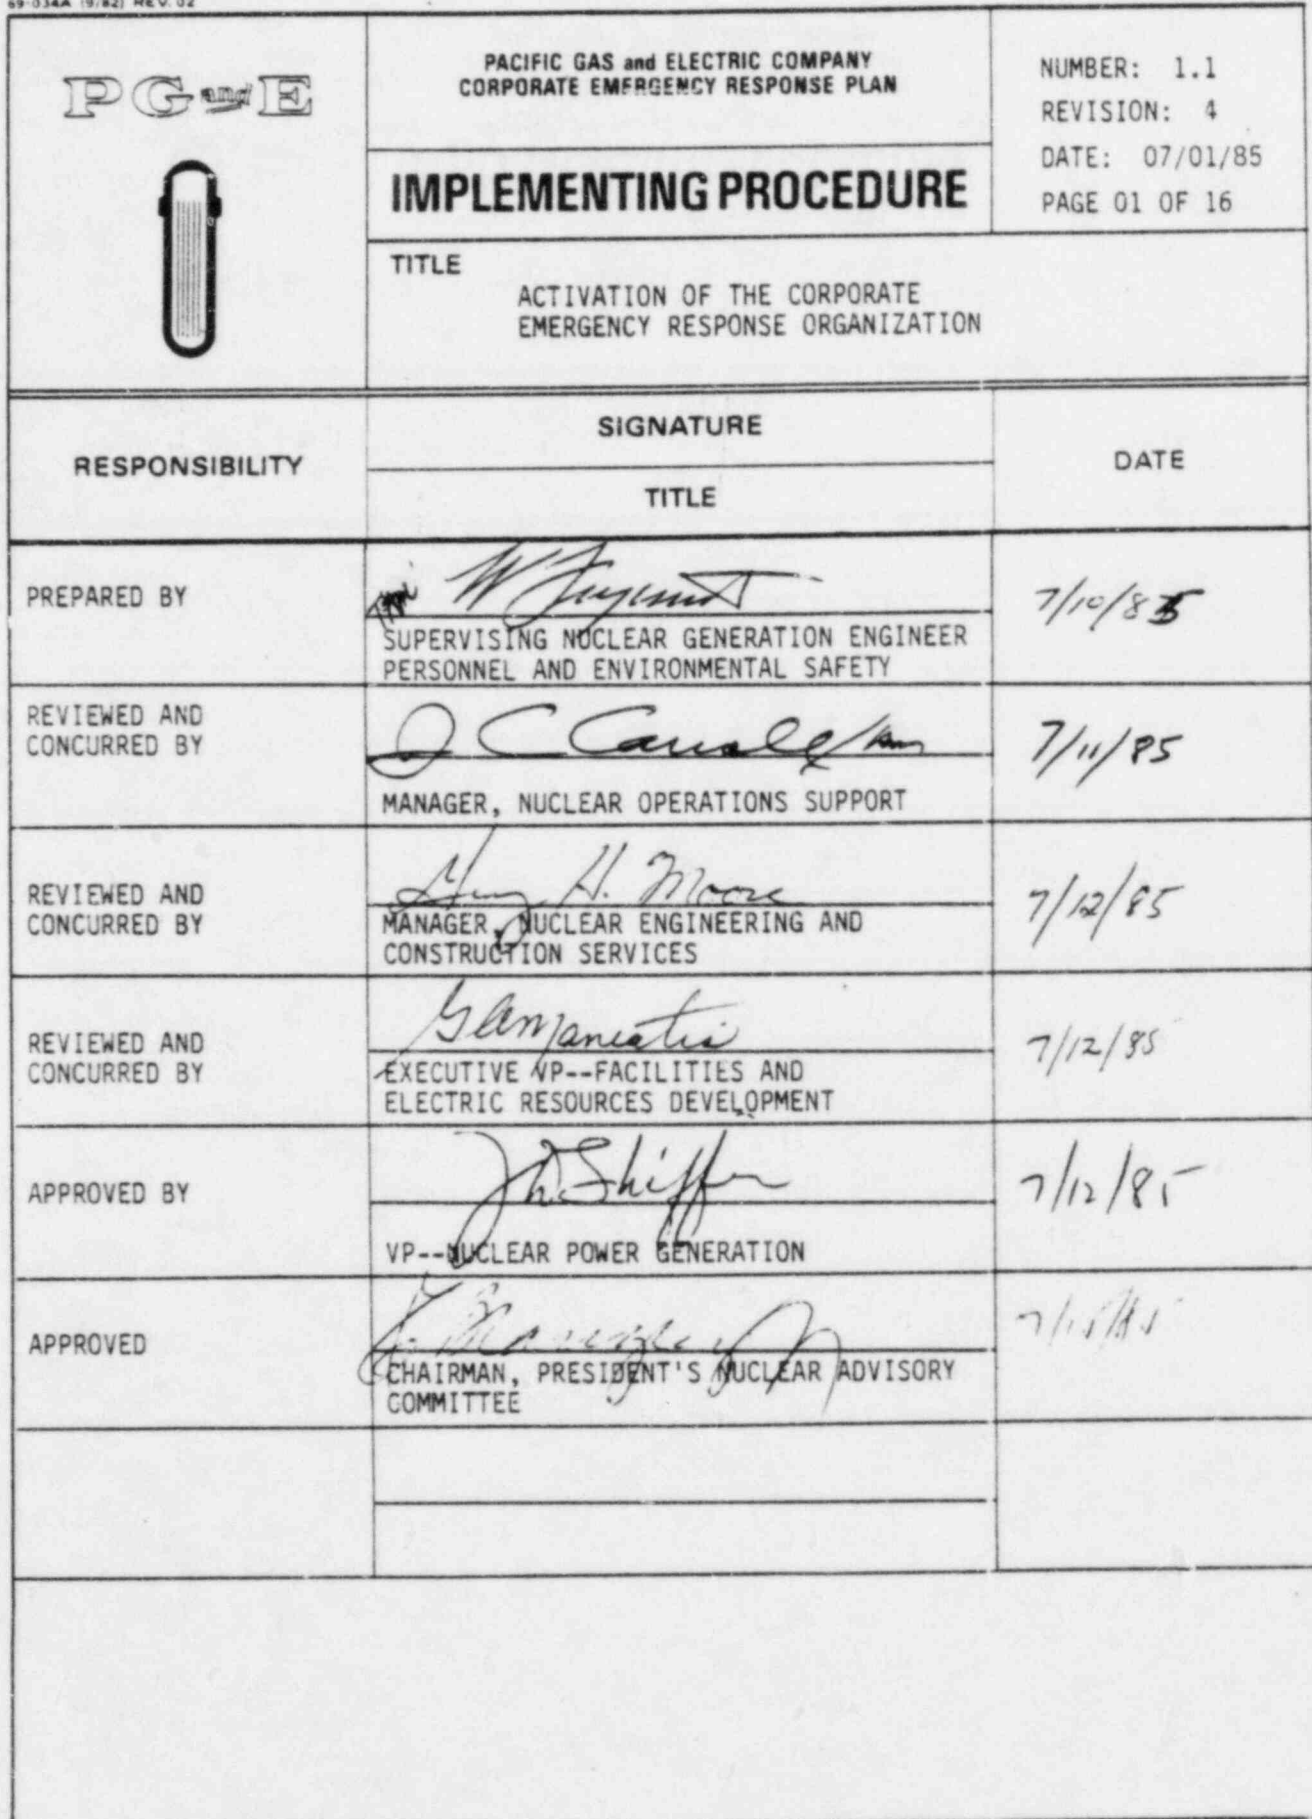 69-034A (9/82) REV. 02
PG and E
PACIFIC GAS and ELECTRIC COMPANY
CORPORATE EMERGENCY RESPONSE PLAN
NUMBER: 1.1
REVISION: 4
DATE: 07/01/85
PAGE 01 OF 16
IMPLEMENTING PROCEDURE
TITLE
ACTIVATION OF THE CORPORATE
EMERGENCY RESPONSE ORGANIZATION
RESPONSIBILITY
SIGNATURE
TITLE
DATE
PREPARED BY
W
7/10/85
SUPERVISING NUCLEAR GENERATION ENGINEER
PERSONNEL AND ENVIRONMENTAL SAFETY
REVIEWED AND
CONCURRED BY
7/11/85
MANAGER, NUCLEAR OPERATIONS SUPPORT
REVIEWED AND
CONCURRED BY
H. Moore
7/12/85
MANAGER, NUCLEAR ENGINEERING AND
CONSTRUCTION SERVICES
REVIEWED AND
CONCURRED BY
7/12/85
EXECUTIVE VP--FACILITIES AND
ELECTRIC RESOURCES DEVELOPMENT
APPROVED BY
Shiffer
7/12/85
VP--NUCLEAR POWER GENERATION
APPROVED
CHAIRMAN, PRESIDENT'S NUCLEAR ADVISORY
COMMITTEE